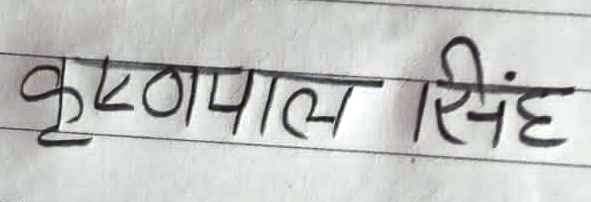 कृष्णपाल सिंह